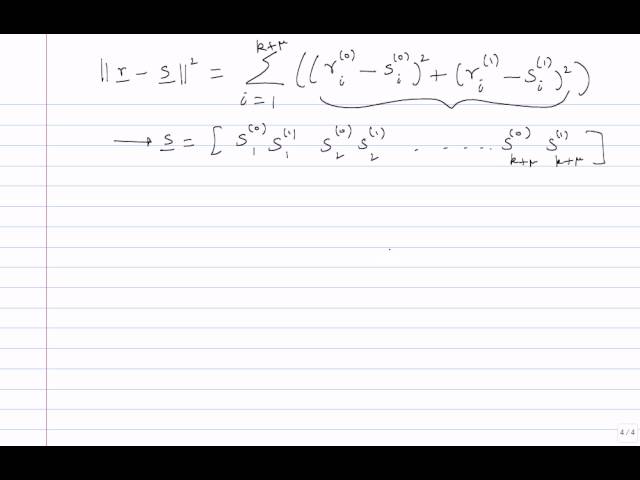 ‖r - s‖² = ∑_{i=1}^{k+μ} ((r_i^{(0)} - s_i^{(0)})² + (r_i^{(1)} - s_i^{(1)})²)
→ s = [ s_1^{(0)} s_1^{(1)} s_2^{(0)} s_2^{(1)} . . . . . . . s_{k+μ}^{(0)} s_{k+μ}^{(1)} ]
4 / 4